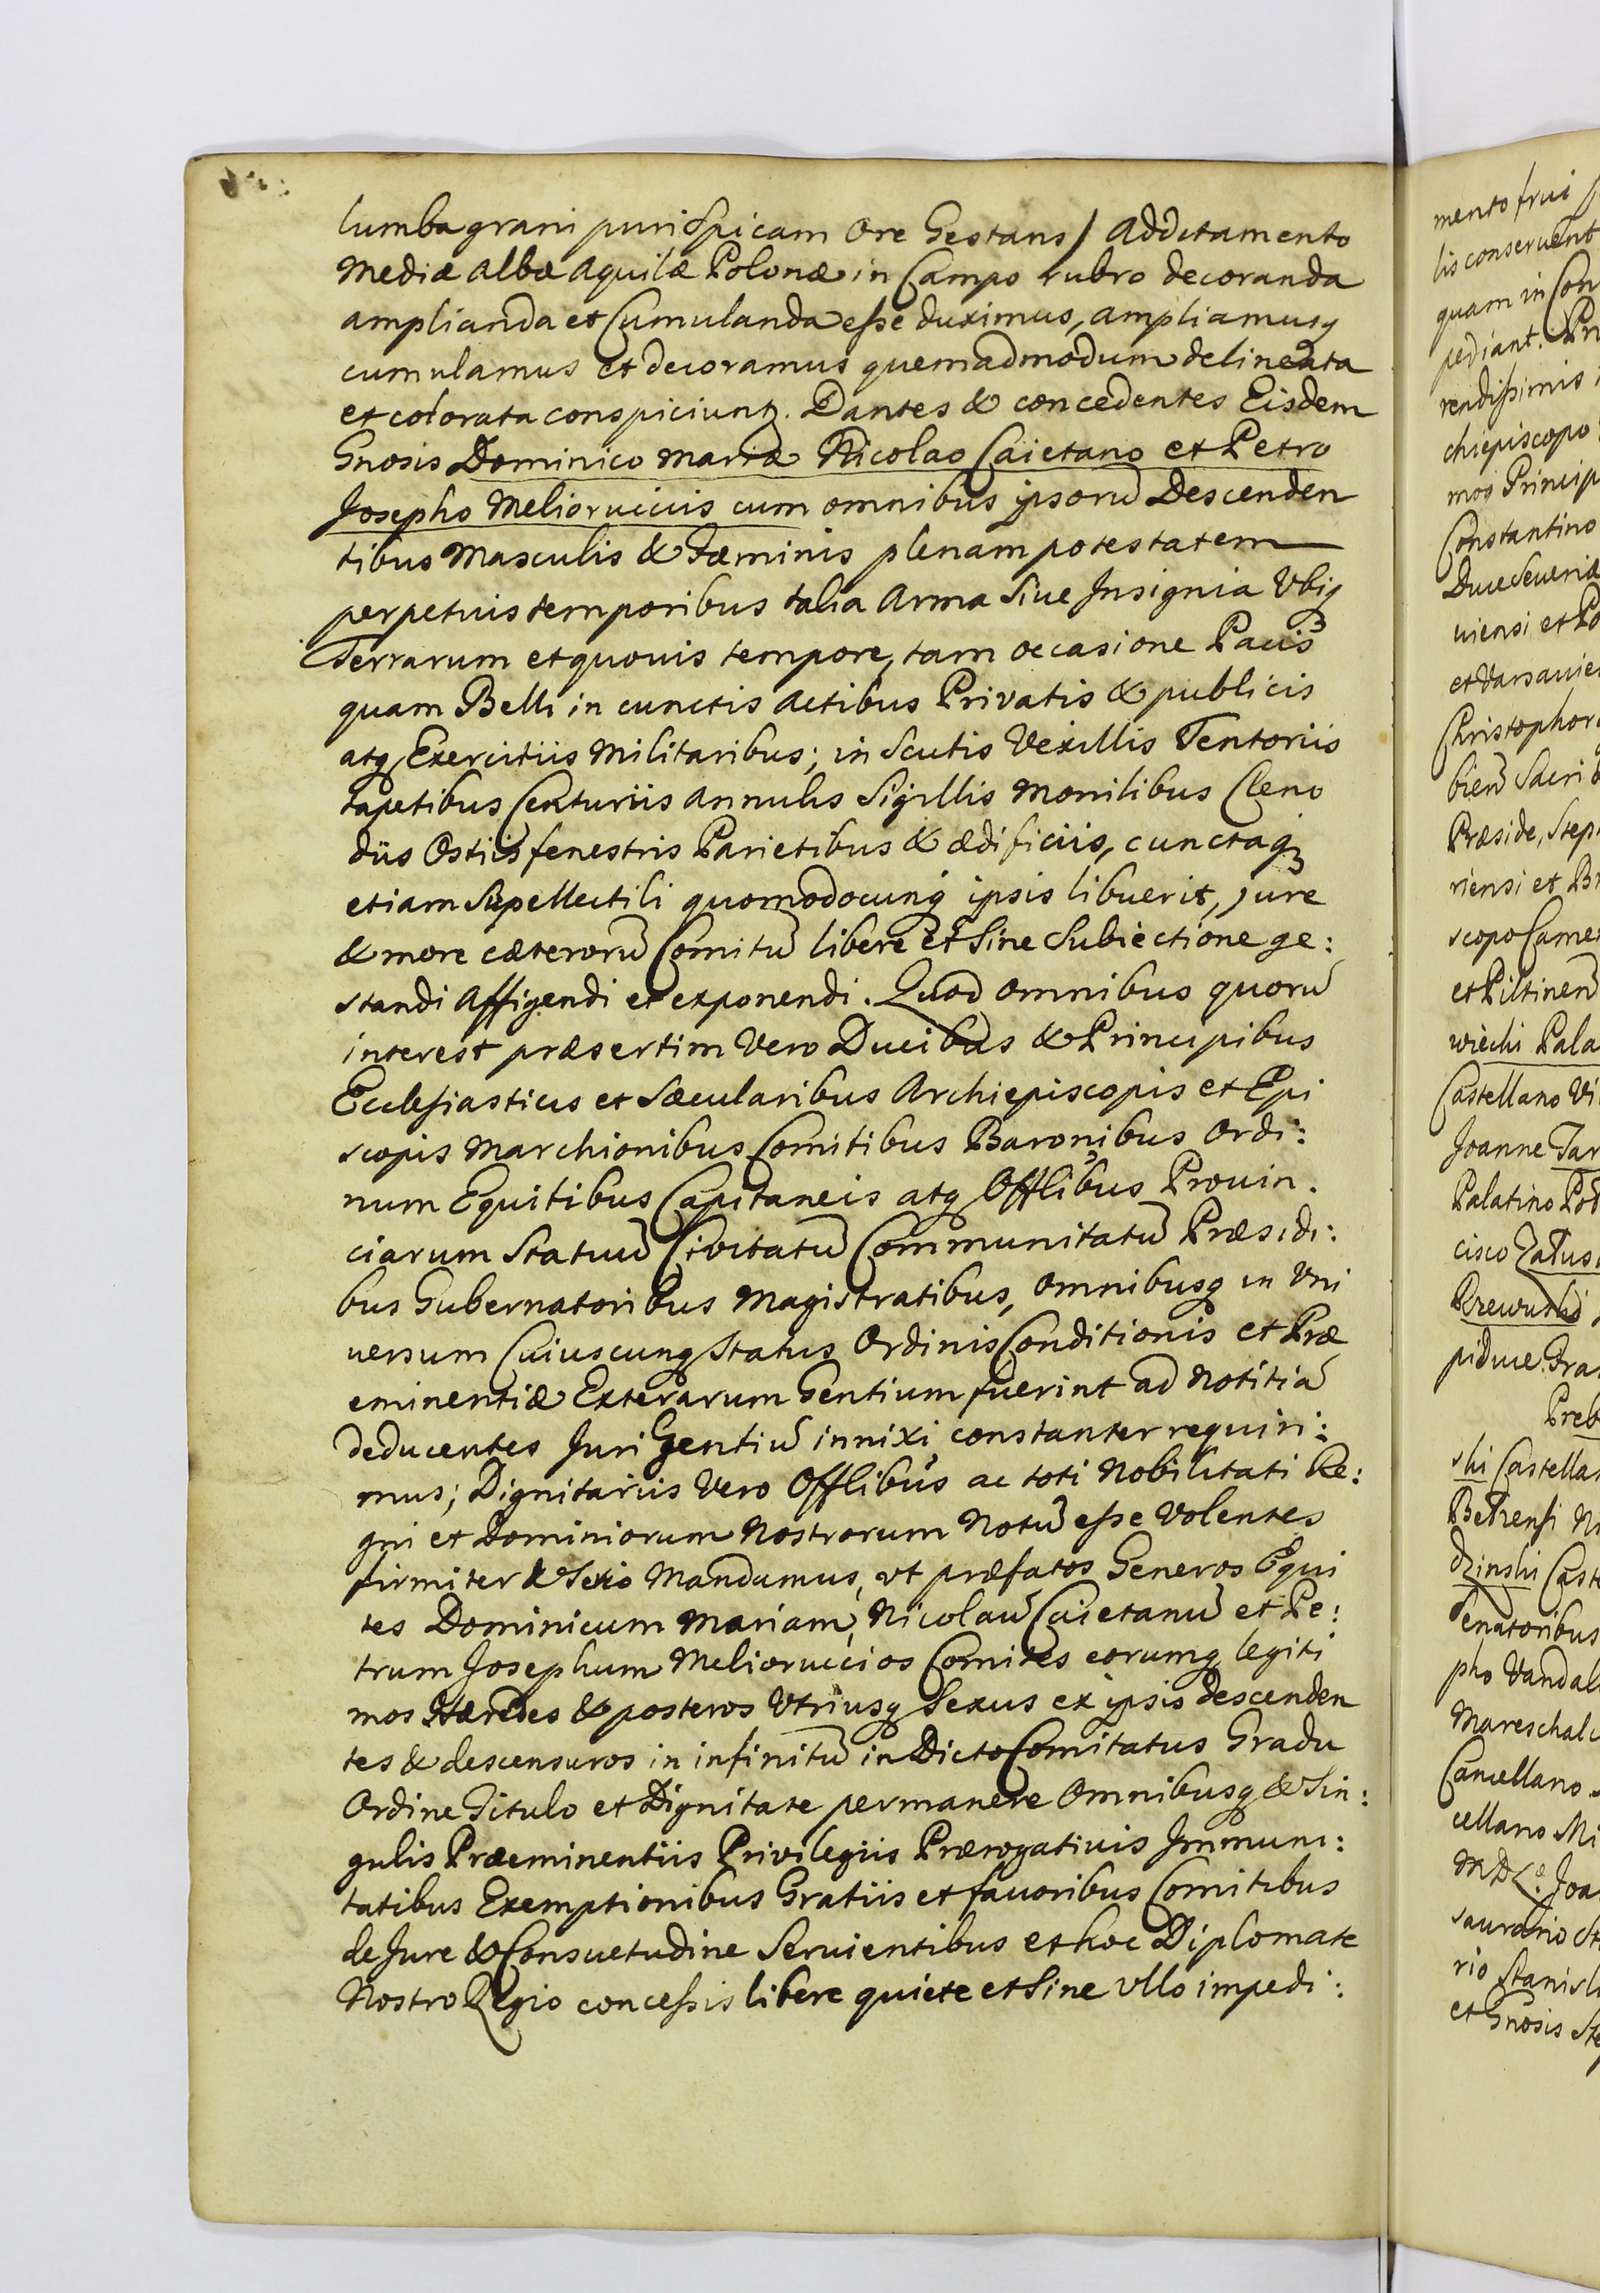 lumba grani puri Spicam Ore Gestans) Additamento
Mediæ Albæ Aquilæ Polonæ in Campo rubro decoranda
amplianda et Cumulanda esse duximus, ampliamusq
cumulamus et decoramus quemadmodum delineata
et colorata conspiciuntr. Dantes & concedentes Eisdem
Gnosis Dominico Mariæ Nicolao Caietano et Petro
Josepho Melioruciis cum omnibus ipsorũ Descenden
tibus Masculis & Fæminis plenam potestatem
perpetuis temporibus talia Arma Siue Insignia Vbiq
Terrarum et quouis tempore, tam occasione Pacis
quam Belli in cunctis Actibus Privatis & publicis
atq Exercitiis Militaribus; in Scutis Vexillis Tentoriis
tapetibus Centuriis Annulis Sigillis Monilibus Cleno
diis Ostiis fenestris Parietibus & ædificiis, cunctaq
etiam Supellectili quomodocunq ipsis libuerit, jure
& more cæterorũ Comitũ libere et Sine Subiectione ge:
standi Affigendi et exponendi. Quod omnibus quorũ
interest præsertim Vero Ducibus & Principibus
Ecclesiasticis et Sæcularibus Archiepiscopis et Epi
scopis Marchionibus Comitibus Baronibus Ordi:
num Equitibus Capitaneis atq Offlibus Prouin.
ciarum Statuũ Civitatũ Communitatũ Præsidi:
bus Gubernatoribus Magistratibus, Omnibusq in Vni
uersum Cuiuscunq Status Ordinis Conditionis et Præ
eminentiæ Exterarum Gentium fuerint ad Notitiã
deducentes Juri Gentiũ innixi constanter requiri:
mus; Dignitariis Vero Offlibus ac toti Nobilitati Re:
gni et Dominiorum Nostrorum Notũ esse Volentes
firmiter & Serio Mandamus, vt præfatos Generos Equi
tes Dominicum Mariam, Nicolaũ Caietanũ et Pe:
trum Josephum Melioruccios Comites eorumq legiti
mos Hæredes & posteros Vtriusq Sexus ex ipsis descenden
tes & descensuros in infinitũ in Dicto Comitatus Gradu
Ordine Titulo et Dignitate permanere Omnibusq & Sin:
gulis Præeminentiis Privilegiis Prærogatiuis Immuni:
tatibus Exemptionibus Gratiis et fauoribus Comitibus
de Jure & Consuetudine Seruientibus et hoc Diplomate
Nostro Regio concessis libere quiete et Sine Vllo impedi:
mento frui
lis conseruent
quam in Con
pediant. Pr
rendissimis
chiepiscopo
moq Princip
Constantino
Duce Seueriæ
uiensi et Po
et Varsauie
Christophor
bien Sacri
Præside, Step
riensi et Br
scopo Came
et Piltinen
wiechi Pala
Castellano Vi
Joanne Tar
Palatino Pod
cisco Zalus
Rzewuski
piduce. Gra
Preb
ski Castella
Betzensi N
dzinski Cast
Senatoribus
pho Vandal
Mareschalc
Cancellario
cellario Mi
M D L. Joa
saurario St
rio Stanisl
et Gnosis Ste